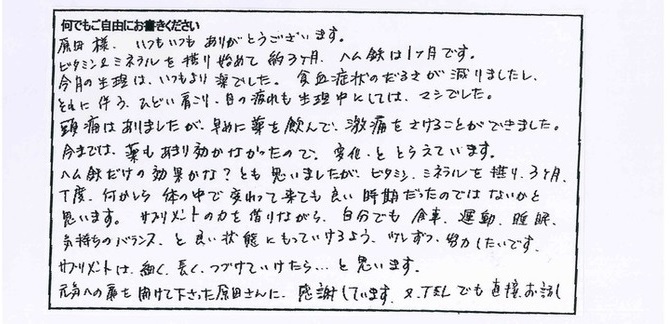 何でもご自由にお書きください
原田様、いつもいつもありがとうございます。
ビタミン&ミネラルを摂り始めて約3ヶ月、ヘム鉄は1ヶ月です。
今月の生理は、いつもより楽でした。貧血症状のだるさが減りましたし、
それに伴う、ひどい肩こり、目の疲れも生理中にしては、マシでした。
頭痛はありましたが、早めに薬を飲んで、激痛をさけることができました。
今までは、薬もあまり効かなかったので、変化、ととらえています。
ヘム鉄だけの効果かな?とも思いましたが、ビタミン、ミネラルを摂り、3ヶ月、
丁度、何かしら体の中で変わって来ても良い時期だったのではないかと
思います。サプリメントの力を借りながら、自分でも食事、運動、睡眠、
気持ちのバランス、と良い状態にもっていけるよう、少しずつ、努力したいです。
サプリメントは、細く、長く、つづけていけたら…と思います。
元気への扉を開けて下さった原田さんに、感謝しています。又、TELでも直接、お話し